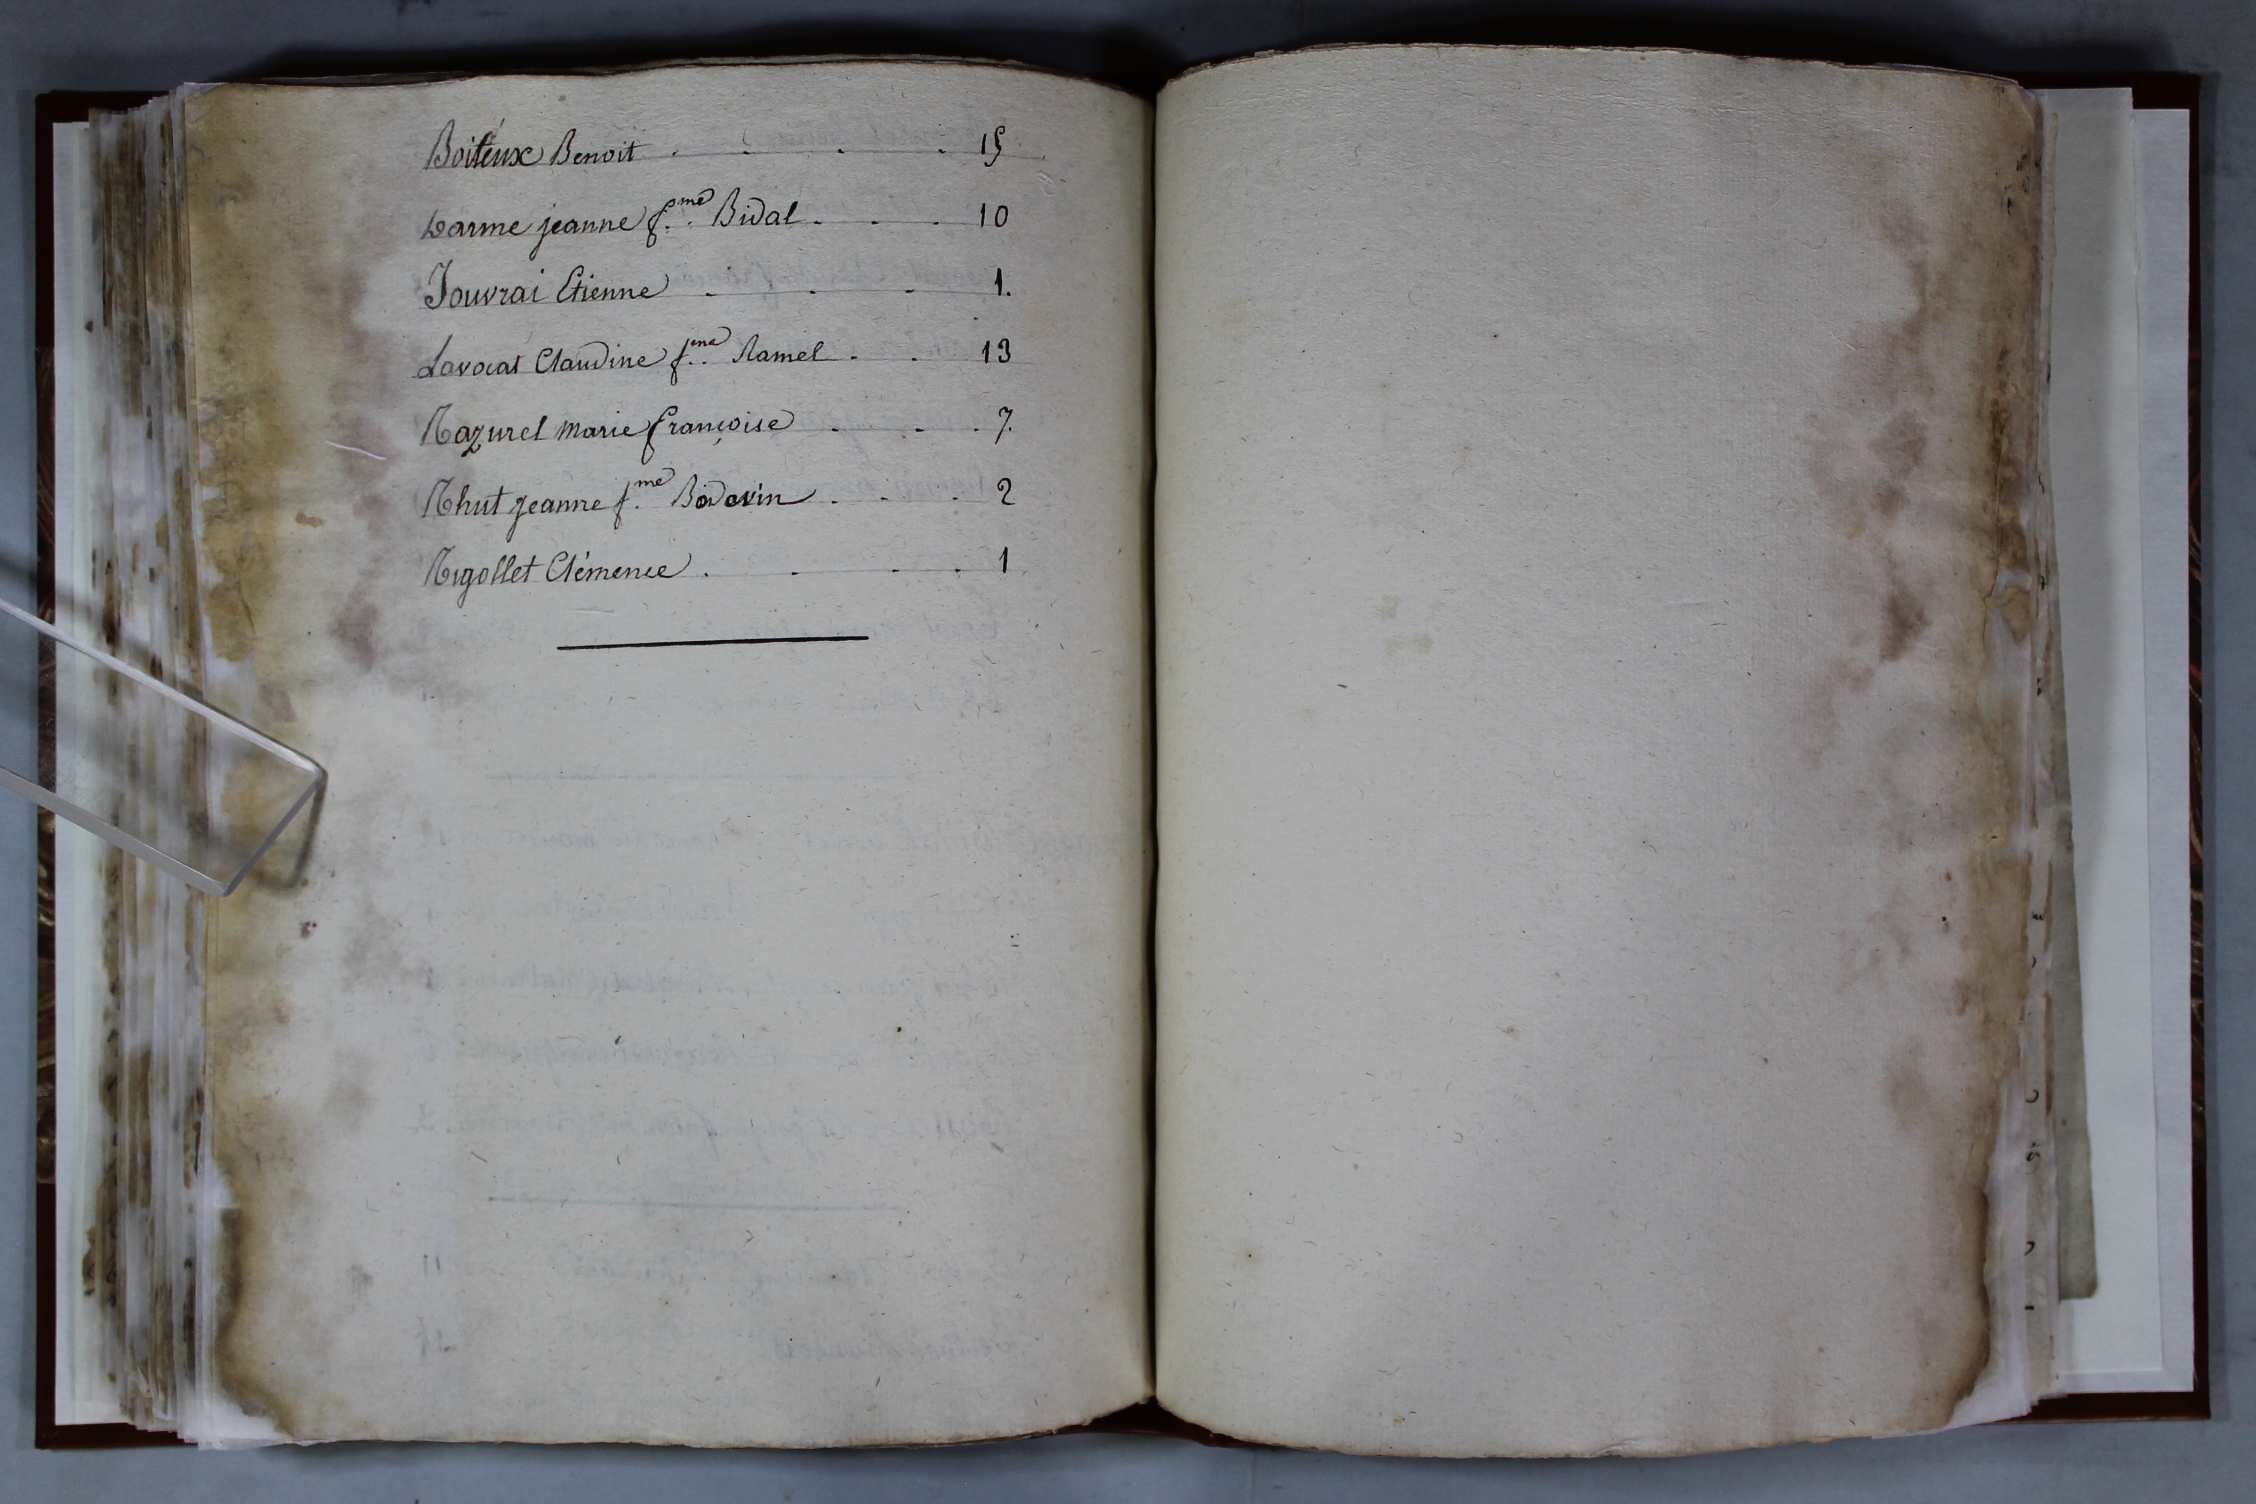 Boiteux Benoit . . . . 15
Darme jeanne f.me Bidal . . . 10
Jouvrai Etienne . . . 1.
Lavocat Claudine f.me Ramel . . 13
Razurel marie françoise . . . 7.
Rhut jeanne f.me Bodovin . . . 2
Rigollet Clémence . . . . 1